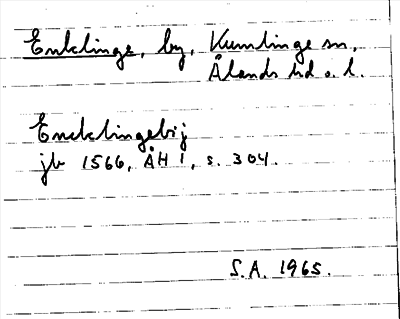 Enklinge, by, Kumlinge sn,
Ålands hd o. l.
Encklingebij
jb 1566, ÅH 1, s. 304.
S.A. 1965.